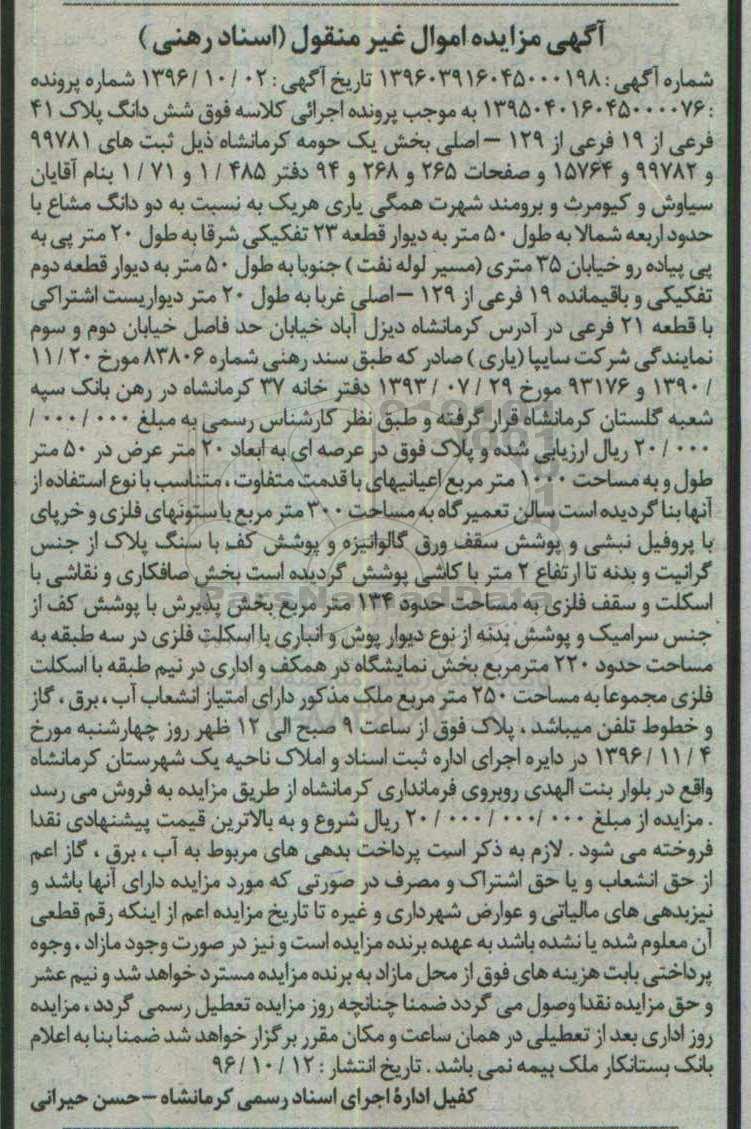 آگهی مزایده اموال غیر منقول (اسناد رهنی)
شماره آگهی : ۱۳۹۶۰۳۹۱۶۰۴۵۰۰۰۱۹۸ تاریخ آگهی : ۰۲ / ۱۰ / ۱۳۹۶ شماره پرونده
: ۱۳۹۵۰۴۰۱۶۰۴۵۰۰۰۰۷۶ به موجب پرونده اجرائی کلاسه فوق شش دانگ پلاک ۴۱
فرعی از ۱۹ فرعی از ۱۲۹ – اصلی بخش یک حومه کرمانشاه ذیل ثبت های ۹۹۷۸۱
و ۹۹۷۸۲ و ۱۵۷۶۴ و صفحات ۲۶۵ و ۲۶۸ و ۹۴ دفتر ۴۸۵ / ۱ و ۷۱ / ۱ بنام آقایان
سیاوش و کیومرث و برومند شهرت همگی یاری هریک به نسبت به دو دانگ مشاع با
حدود اربعه شمالا به طول ۵۰ متر به دیوار قطعه ۲۳ تفکیکی شرقا به طول ۲۰ متر پی به
پی پیاده رو خیابان ۳۵ متری (مسیر لوله نفت ) جنوبا به طول ۵۰ متر به دیوار قطعه دوم
تفکیکی و باقیمانده ۱۹ فرعی از ۱۲۹ –اصلی غربا به طول ۲۰ متر دیواریست اشتراکی
با قطعه ۲۱ فرعی در آدرس کرمانشاه دیزل آباد خیابان حد فاصل خیابان دوم و سوم
نمایندگی شرکت سایپا (یاری ) صادر که طبق سند رهنی شماره ۸۳۸۰۶ مورخ ۲۰ /۱۱
/ ۱۳۹۰ و ۹۳۱۷۶ مورخ ۲۹ / ۰۷ / ۱۳۹۳ دفتر خانه ۳۷ کرمانشاه در رهن بانک سپه
شعبه گلستان کرمانشاه قرار گرفته و طبق نظر کارشناس رسمی به مبلغ ۰۰۰ / ۰۰۰ /
۲۰ / ۰۰۰ ریال ارزیابی شده و پلاک فوق در عرصه ای به ابعاد ۲۰ متر عرض در ۵۰ متر
طول و به مساحت ۱۰۰۰ متر مربع اعیانیهای با قدمت متفاوت ، متناسب با نوع استفاده از
آنها بنا گردیده است سالن تعمیرگاه به مساحت ۳۰۰ متر مربع با ستونهای فلزی و خرپای
با پروفیل نبشی و پوشش سقف ورق گالوانیزه و پوشش کف با سنگ پلاک از جنس
گرانیت و بدنه تا ارتفاع ۲ متر با کاشی پوشش گردیده است بخش صافکاری و نقاشی با
اسکلت و سقف فلزی به مساحت حدود ۱۳۴ متر مربع بخش پذیرش با پوشش کف از
جنس سرامیک و پوشش بدنه از نوع دیوار پوش و انباری با اسکلت فلزی در سه طبقه به
مساحت حدود ۲۲۰ مترمربع بخش نمایشگاه در همکف و اداری در نیم طبقه با اسکلت
فلزی مجموعا به مساحت ۲۵۰ متر مربع ملک مذکور دارای امتیاز انشعاب آب ، برق ، گاز
و خطوط تلفن میباشد ، پلاک فوق از ساعت ۹ صبح الی ۱۲ ظهر روز چهارشنبه مورخ
۴ / ۱۱ / ۱۳۹۶ در دایره اجرای اداره ثبت اسناد و املاک ناحیه یک شهرستان کرمانشاه
واقع در بلوار بنت الهدی روبروی فرمانداری کرمانشاه از طریق مزایده به فروش می رسد
. مزایده از مبلغ ۰۰۰ /۰۰۰ / ۰۰۰ / ۲۰ ریال شروع و به بالاترین قیمت پیشنهادی نقدا
فروخته می شود . لازم به ذکر است پرداخت بدهی های مربوط به آب ، برق ، گاز اعم
از حق انشعاب و یا حق اشتراک و مصرف در صورتی که مورد مزایده دارای آنها باشد و
نیزبدهی های مالیاتی و عوارض شهرداری و غیره تا تاریخ مزایده اعم از اینکه رقم قطعی
آن معلوم شده یا نشده باشد به عهده برنده مزایده است و نیز در صورت وجود مازاد ، وجوه
پرداختی بابت هزینه های فوق از محل مازاد به برنده مزایده مسترد خواهد شد و نیم عشر
و حق مزایده نقدا وصول می گردد ضمنا چنانچه روز مزایده تعطیل رسمی گردد ، مزایده
روز اداری بعد از تعطیلی در همان ساعت و مکان مقرر برگزار خواهد شد ضمنا بنا به اعلام
بانک بستانکار ملک بیمه نمی باشد . تاریخ انتشار : ۱۲ / ۱۰ / ۹۶
کفیل ادارۀ اجرای اسناد رسمی کرمانشاه –حسن حیرانی
ParsNamadData